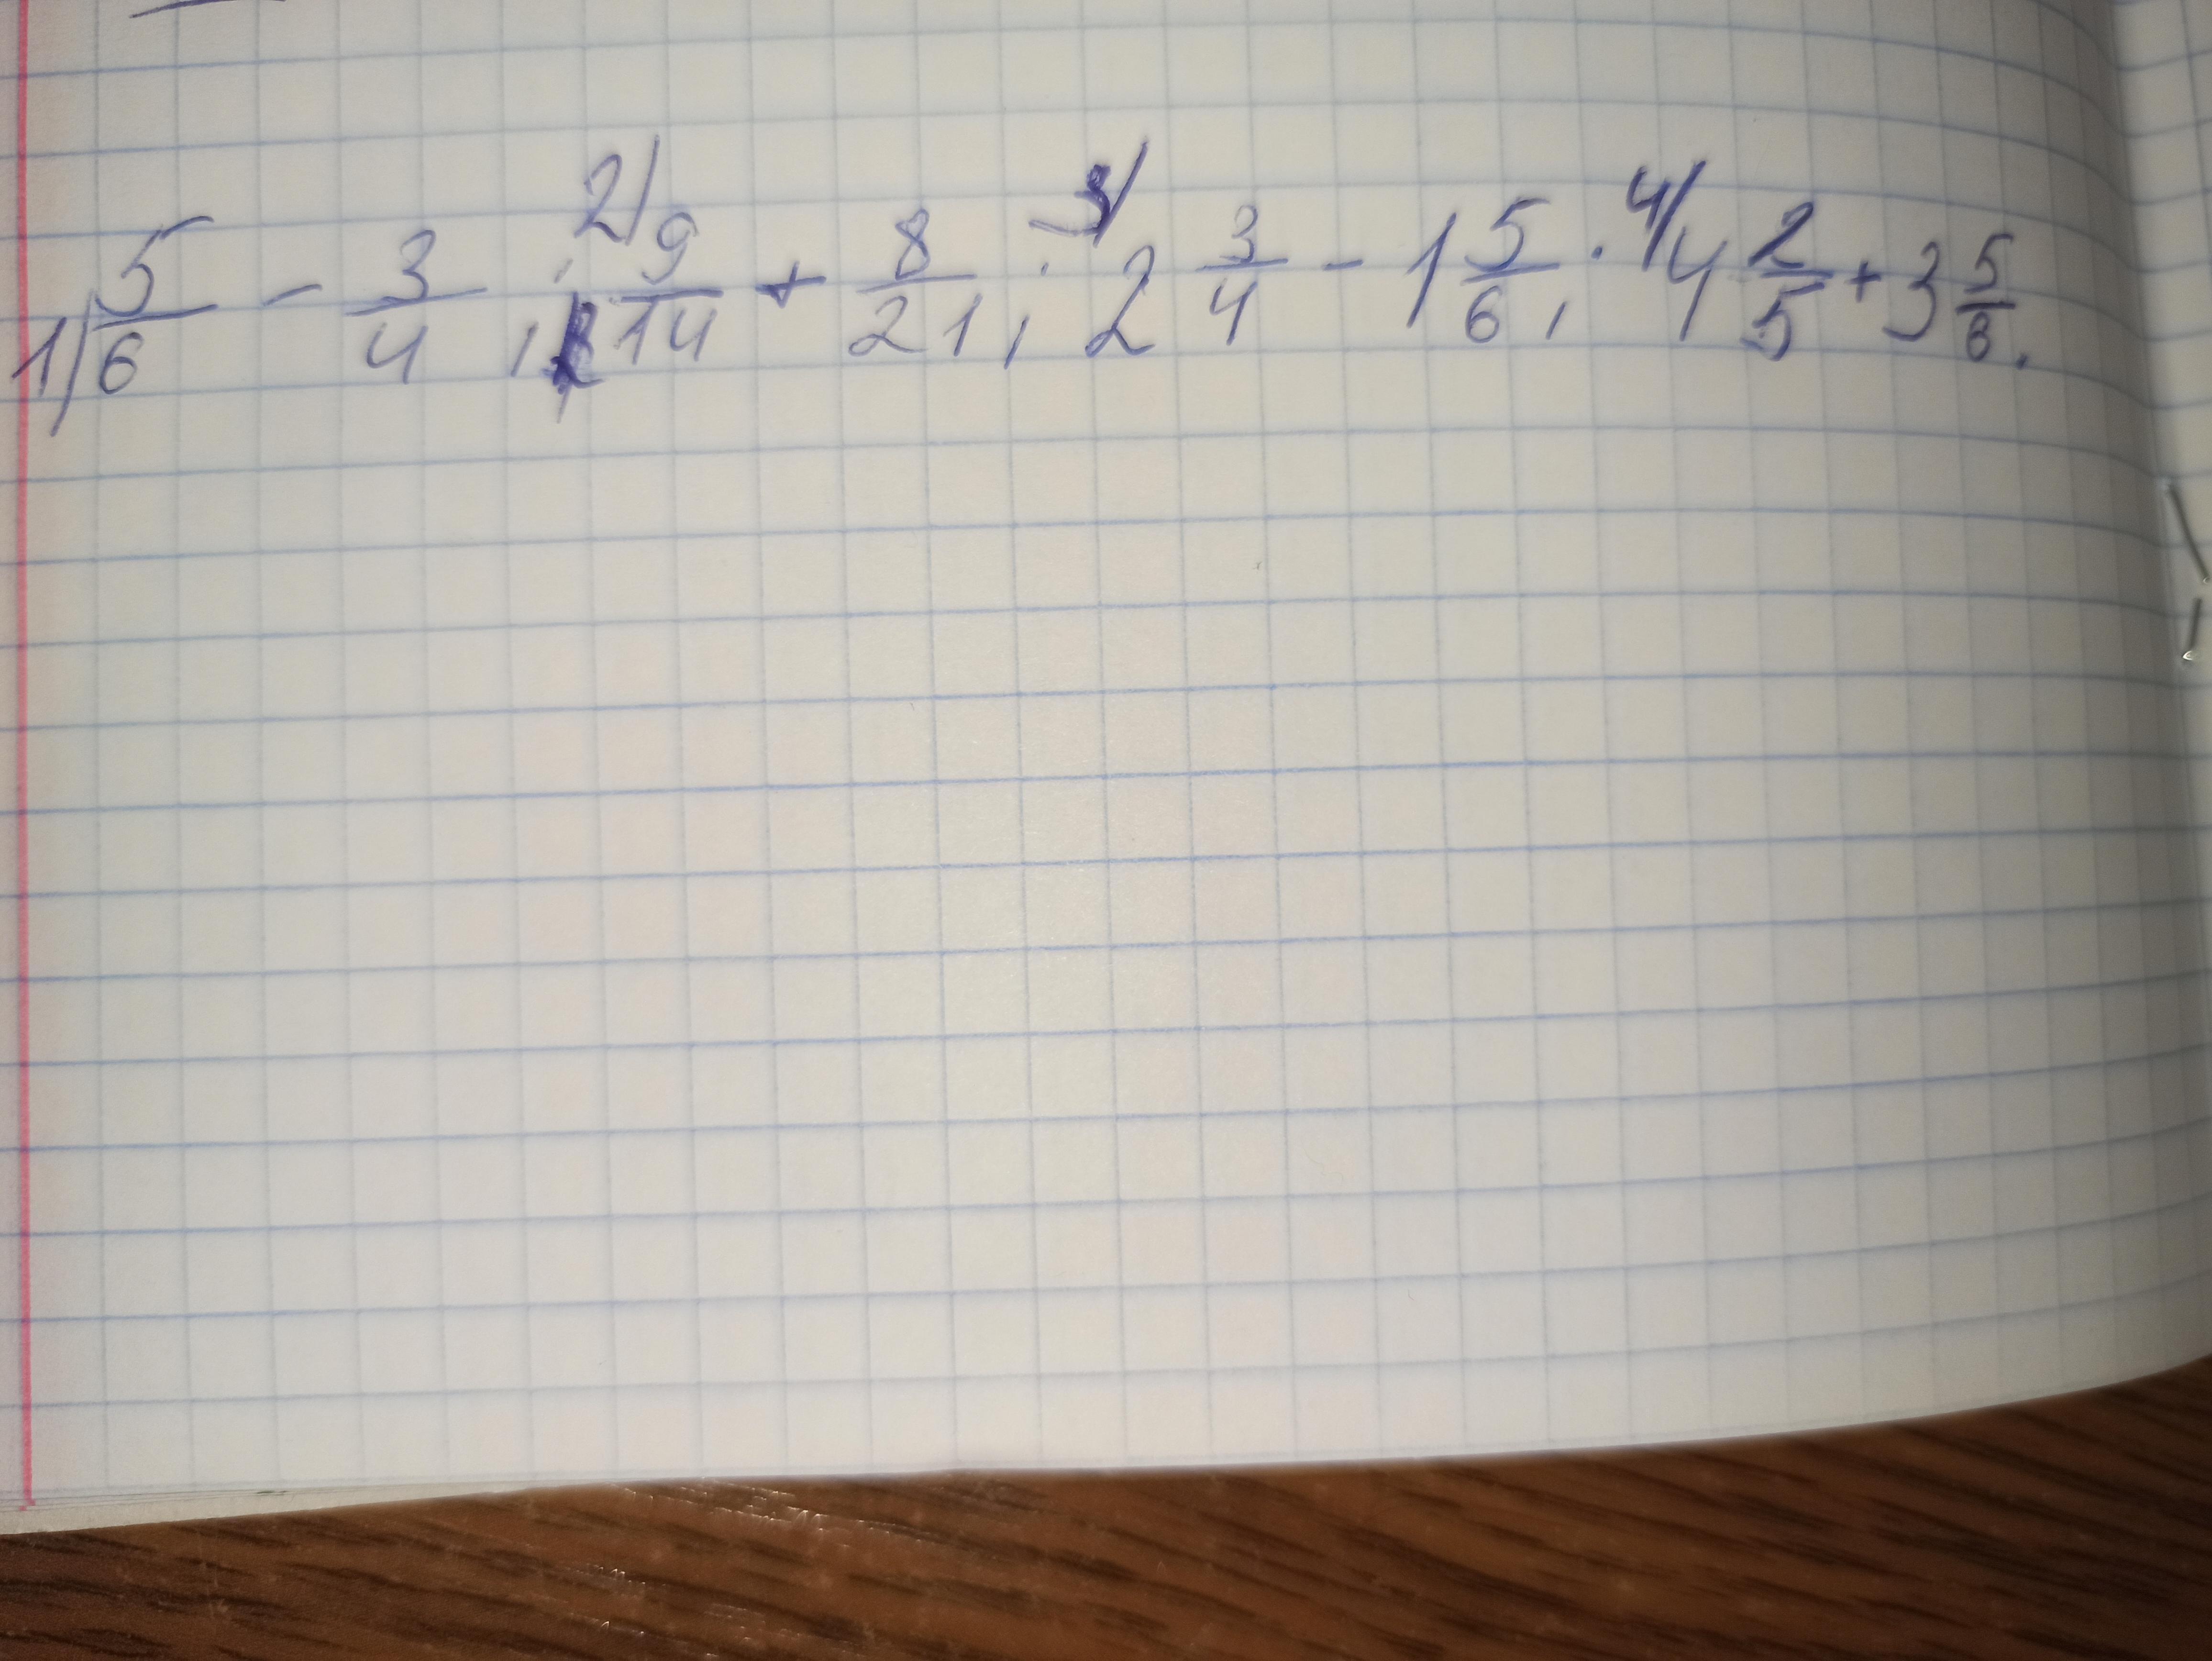 1) 5/6 - 3/4; 2) 9/14 + 8/21; 3) 2 3/4 - 1 5/6; 4) 4 2/5 + 3 5/6.